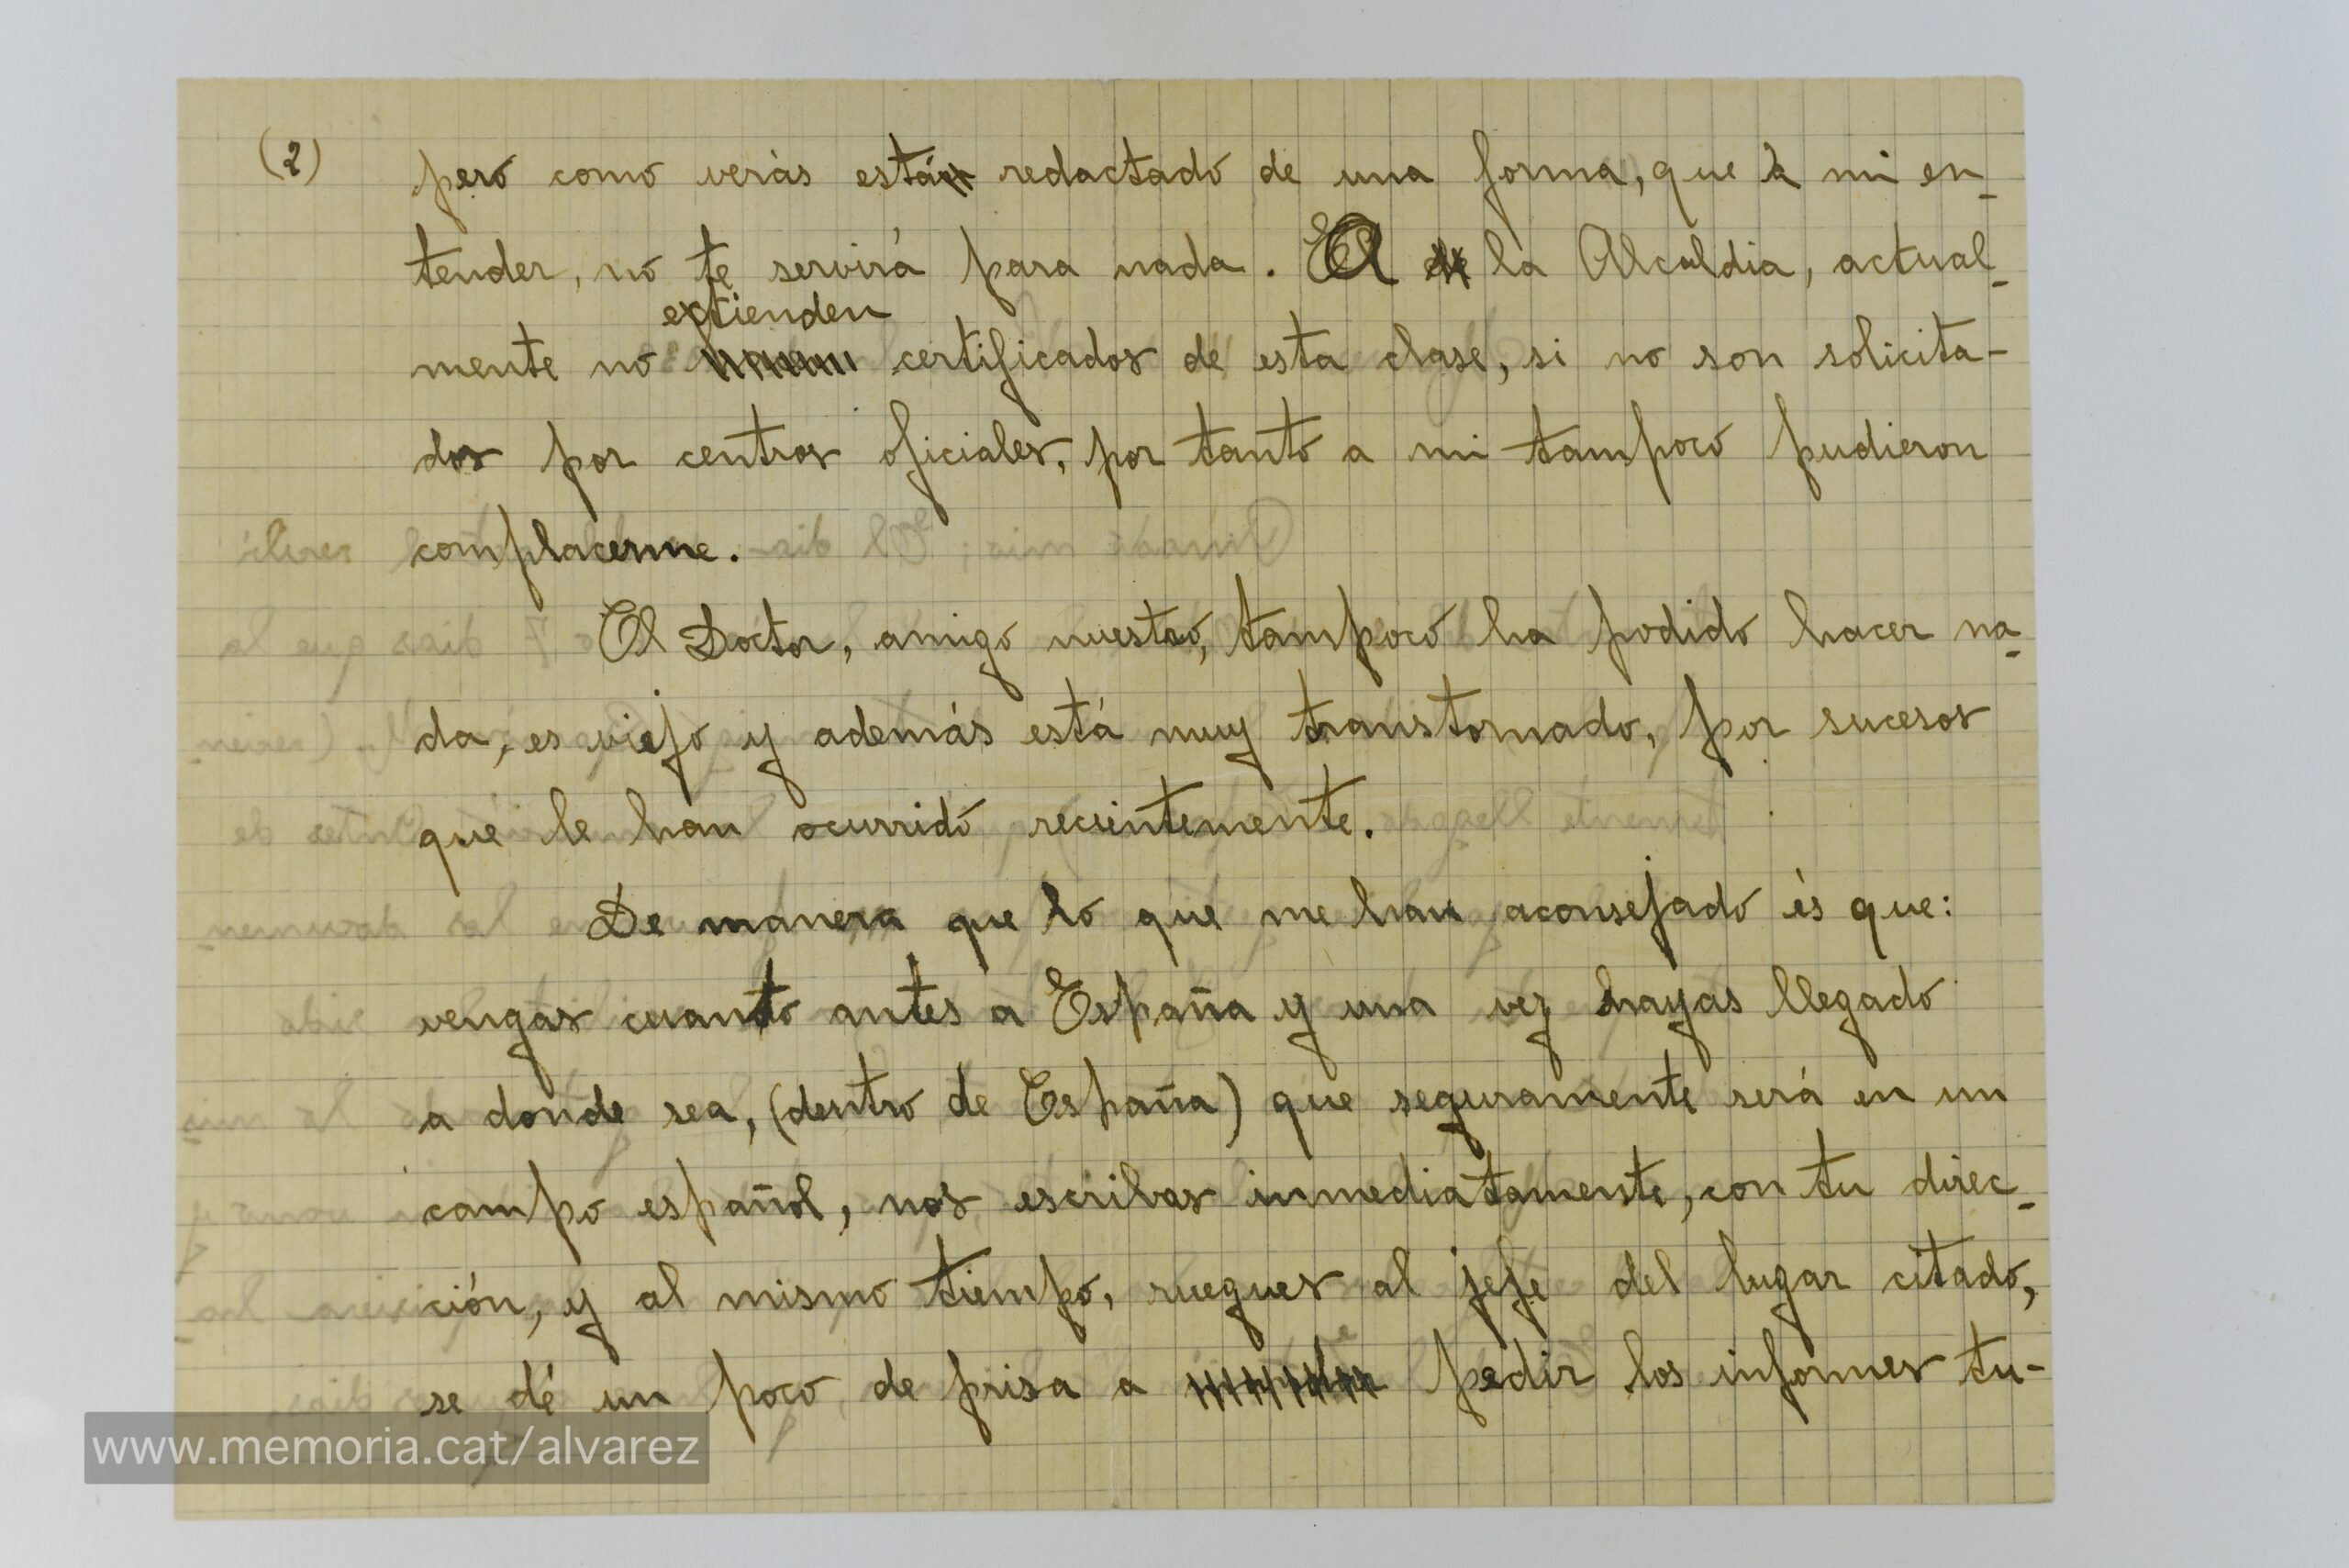 (2) pero como verás está redactado de una forma, que a mi en-
tender, no te servirá para nada. A la Alcaldia, actual-
extienden
mente no certificados de esta clase, si no son solicita-
dos por centros oficiales, por tanto a mi tampoco pudieron
complacerme.
El Doctor, amigo nuestro, tampoco ha podido hacer na-
da, es viejo y además está muy transtornado, por sucesos
que le han ocurrido recientemente.
De manera que lo que me han aconsejado és que:
vengas cuanto antes a España y una vez hayas llegado
a donde sea, (dentro de España) que seguramente será en un
campo español, nos escribas inmediatamente, con tu direc-
ción, y al mismo tiempo, ruegues al jefe del lugar citado,
se dé un poco, de prisa a pedir los informes tu-
www.memoria.cat/alvarez